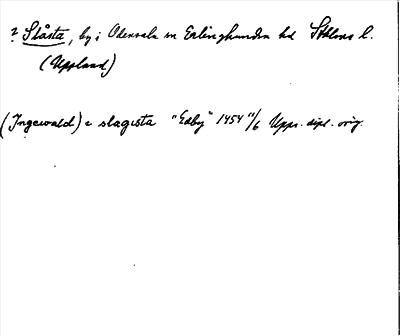 ? Slåsta, by i Odensala sn Erlinghundra hd Sthlms l.
(Uppland)
(Ingewald) i slagista "Edby" 1454 11/6 Upps. dipl. orig.